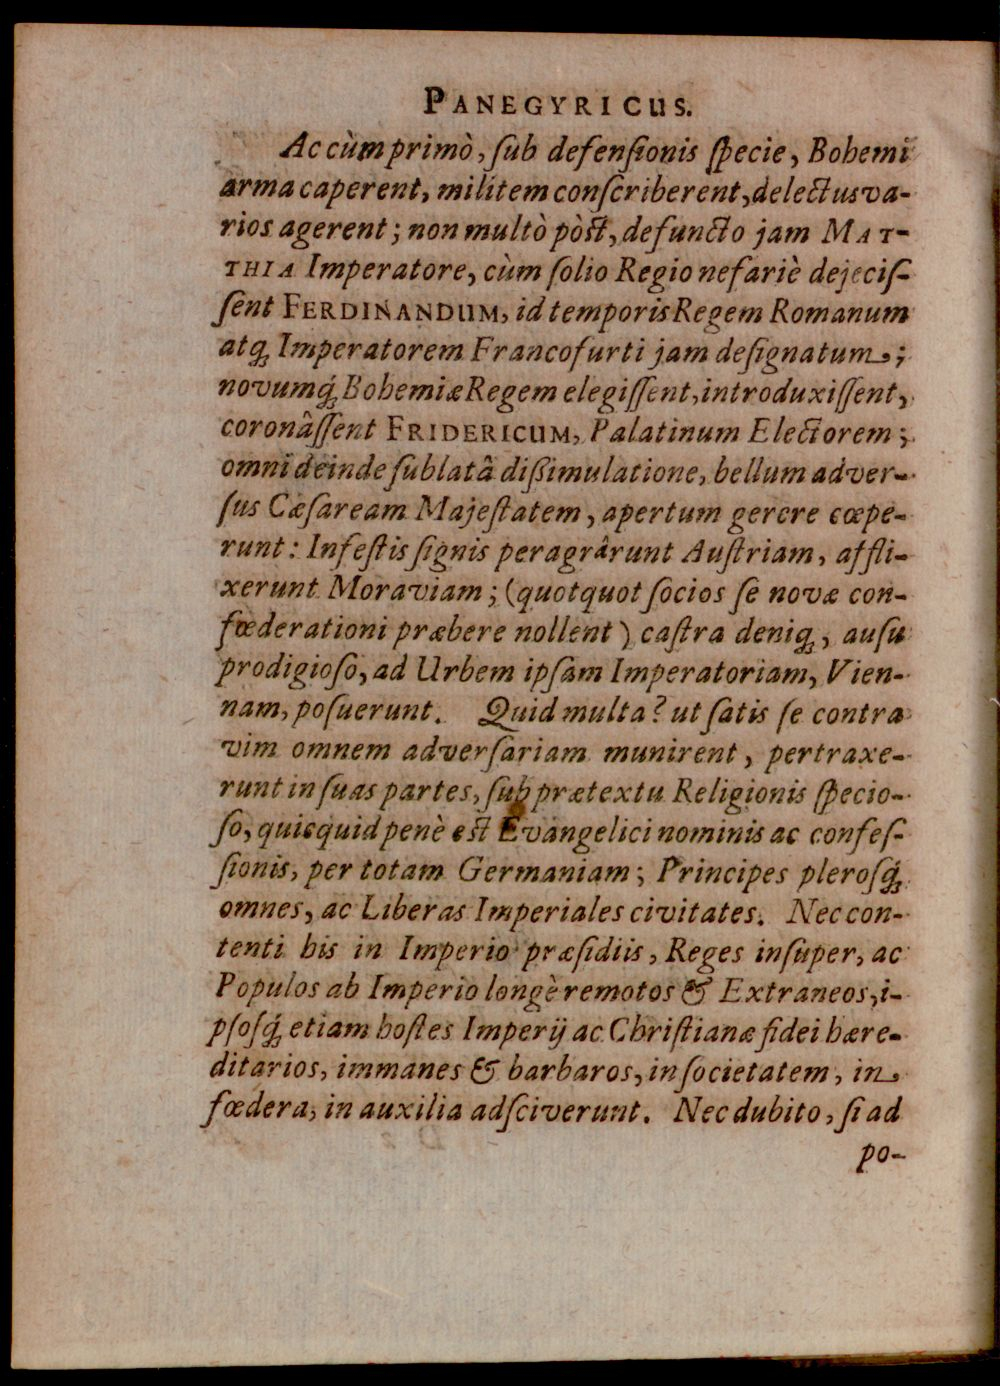 PANEGYRICUS.
Ac cùm primò, ſub defenſionis ſpecie, Bohemi
arma caperent, militem conſcriberent, delectus va-
rios agerent; non multò pòſt, defuncto jam MAT-
THIA Imperatore, cùm ſolio Regio nefariè dejeciſ-
ſent FERDINANDUM, id temporis Regem Romanum
atq́; Imperatorem Francofurti jam deſignatum;
novumq́; Bohemiæ Regem elegiſſent, introduxiſſent,
coronâſſent FRIDERICUM, Palatinum Electorem;
omni deinde ſublatâ diſſimulatione, bellum adver-
ſus Cæſaream Majeſtatem, apertum gerere cœpe-
runt: Infeſtis ſignis peragrârunt Auſtriam, affli-
xerunt Moraviam; (quotquot ſocios ſe novæ con-
fœderationi præbere nollent) caſtra deniq;, auſu
prodigioſo, ad Urbem ipſam Imperatoriam, Vien-
nam, poſuerunt. Quid multa? ut ſatis ſe contra
vim omnem adverſariam munirent, pertraxe-
runt in ſuas partes, ſub prætextu Religionis ſpecio-
ſo, quicquid penè eſt Evangelici nominis ac confeſ-
ſionis, per totam Germaniam; Principes pleroſq́;
omnes, ac Liberas Imperiales civitates. Nec con-
tenti his in Imperio præſidiis, Reges inſuper, ac
Populos ab Imperio longè remotos & Extraneos, i-
pſoſq́; etiam hoſtes Imperij ac Chriſtianæ fidei hære-
ditarios, immanes & barbaros, in ſocietatem, in
fœdera, in auxilia adſciverunt. Nec dubito, ſi ad
po-